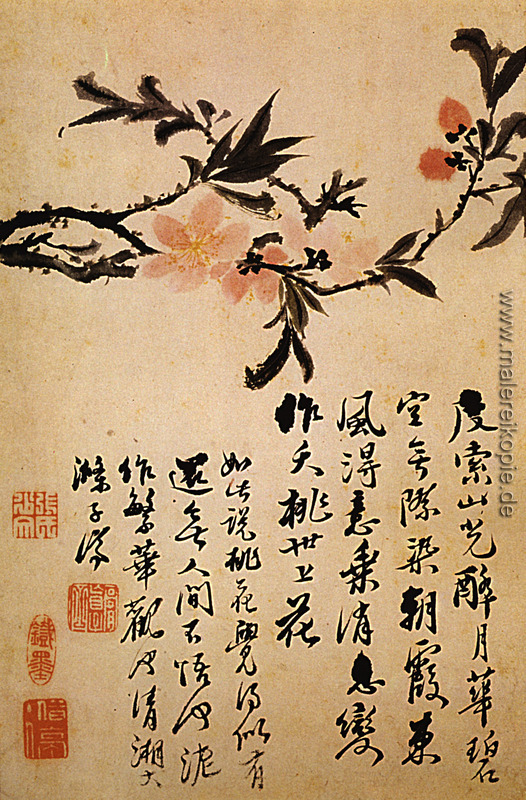 度索山光醉月華碧
空無際染朝霞東
風得意乘消息變
作夭桃世上花
如此說桃花覺得似有
還無人間不悟何泥
作繁華觀也清湘大
滌子
www.malereikopie.de